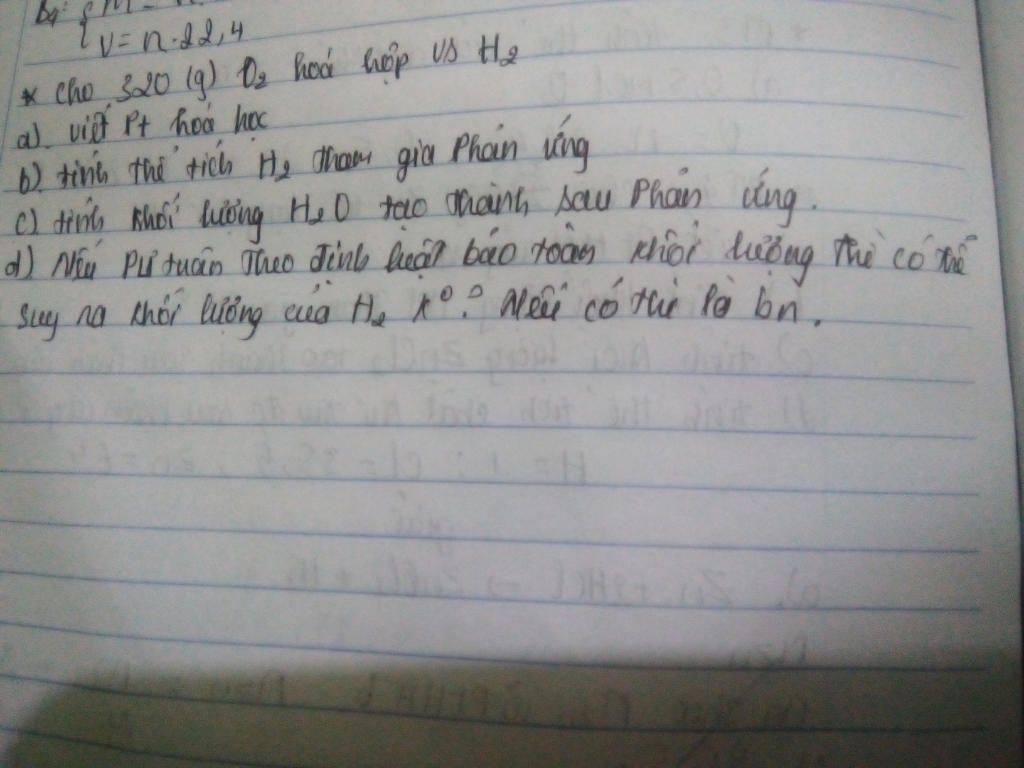 V = n.22,4
* cho 320 (g) O2 hoá hợp vs H2
a). viết Pt hoá học
b). tính thể tích H2 tham gia Phản ứng
c) tính khối lượng H2O tạo thành sau Phản ứng.
d) Nếu Pư tuân Theo định luật bảo toàn khối lượng thì có thể
suy ra khối lượng của H2 k° ? Nếu có thì là bn.